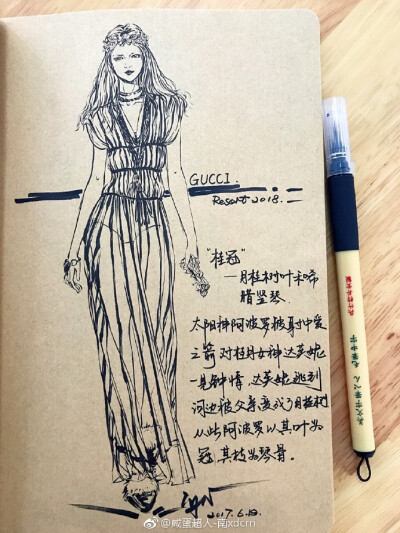 GUCCI.
Resort 2018.
"桂冠"
—月桂树叶和希
腊竖琴
太阳神阿波罗被射中爱
之箭对桂树女神达芙妮
一见钟情 达芙妮逃到
河边被父亲变成了月桂树
从此阿波罗以其叶为
冠 其枝为琴骨.
2017.6.
@咸蛋超人-南xdcrn